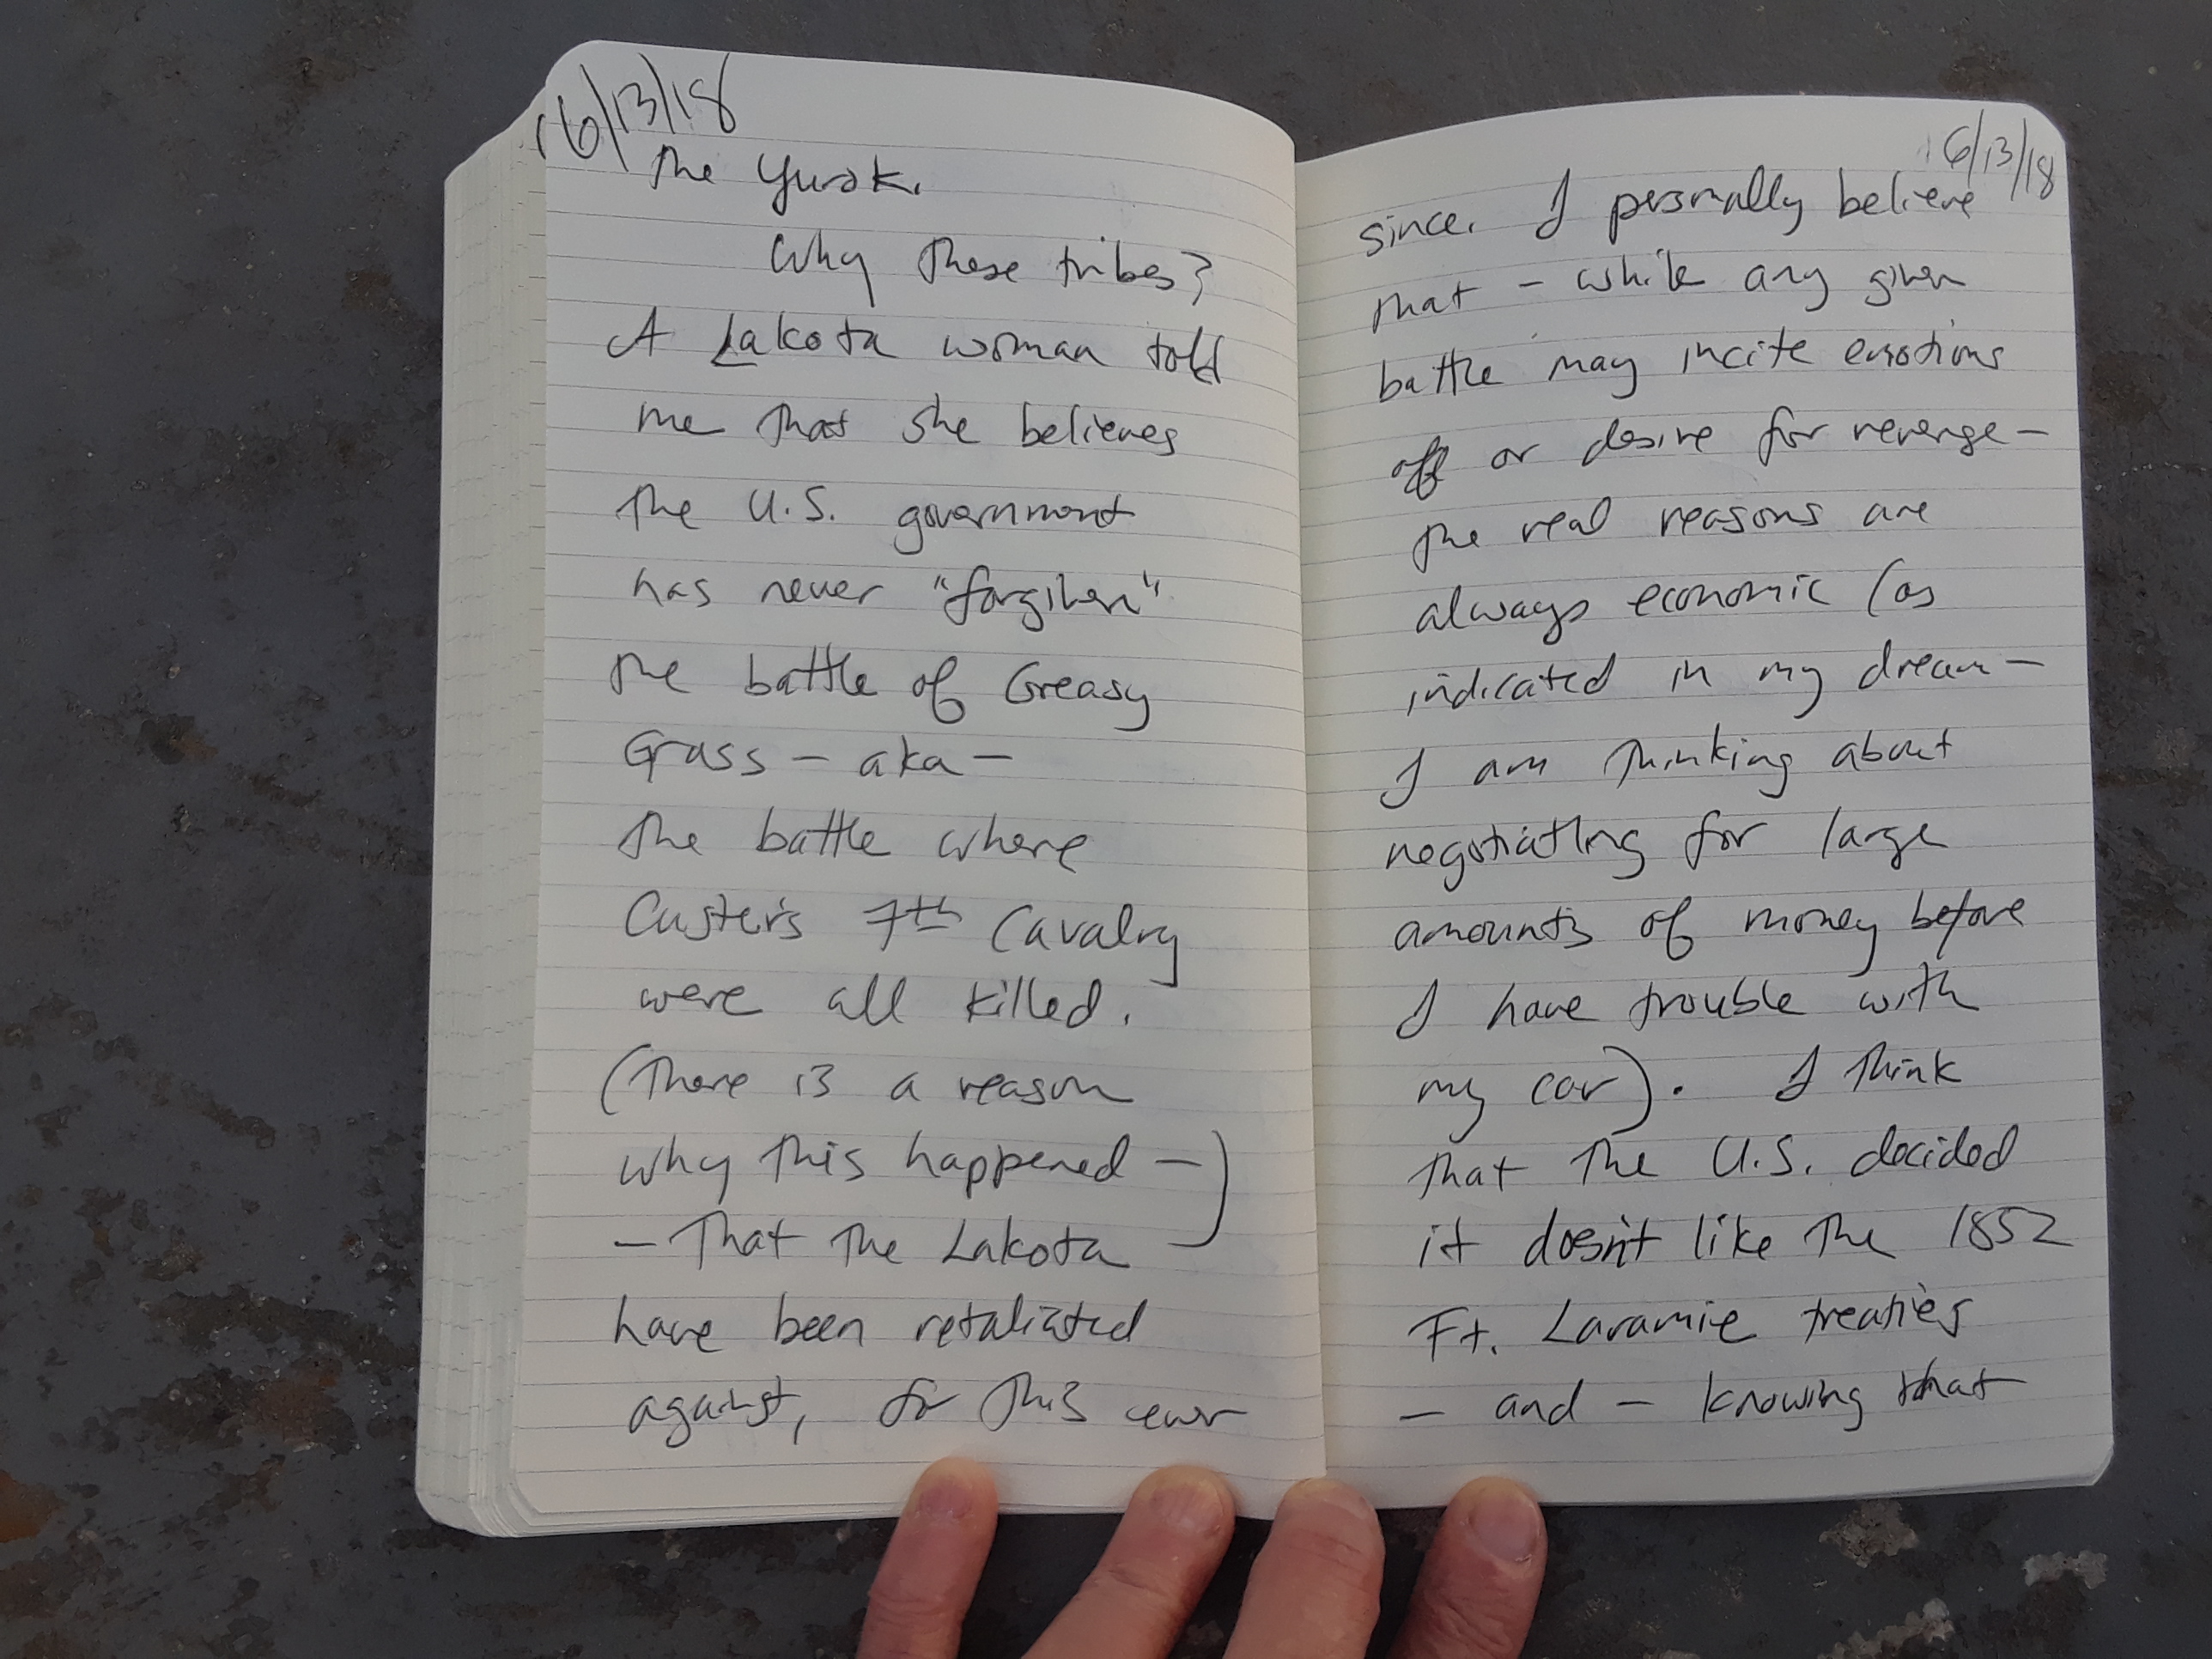 6/13/18
The Yurok.
Why these tribes?
A Lakota woman told
me that she believes
the U.S. government
has never "forgiven"
the battle of Greasy
Grass – aka –
the battle where
Custer's 7th Cavalry
were all killed.
(There is a reason
why this happened –)
– That the Lakota
have been retaliated
against, for this ever
6/13/18
since. I personally believe
that – while any given
battle may incite emotions
off or desire for revenge –
the real reasons are
always economic (as
indicated in my dream –
I am thinking about
negotiating for large
amounts of money before
I have trouble with
my car). I think
that the U.S. decided
it doesn't like the 1852
Ft. Laramie treaties
– and – knowing that